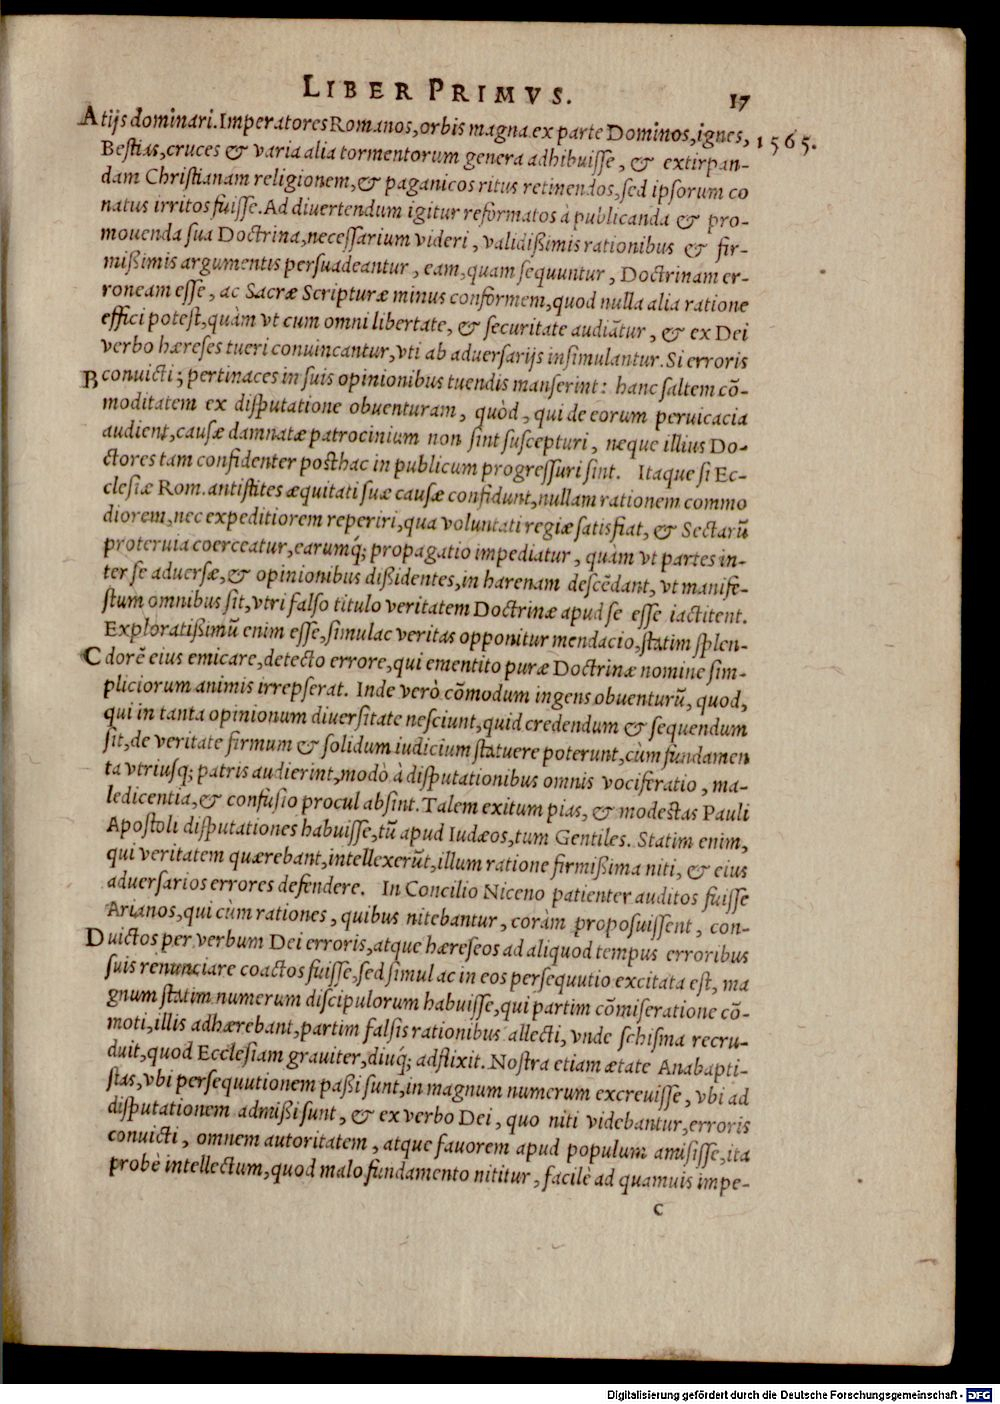 LIBER PRIMVS. 17
A tijs dominari. Imperatores Romanos, orbis magna ex parte Dominos, ignes, 1565.
Bestias, cruces & varia alia tormentorum genera adhibuisse, & extirpan-
dam Christianam religionem, & paganicos ritus retinendos, sed ipsorum co
natus irritos fuisse. Ad divertendum igitur reformatos à publicanda & pro-
mouenda sua Doctrina, necessarium videri, validißimis rationibus & fir-
mißimis argumentis persuadeantur, eam, quam sequuntur, Doctrinam er-
roneam esse, ac Sacræ Scripturæ minus conformem, quod nulla alia ratione
effici potest, quàm vt cum omni libertate, & securitate audiãtur, & ex Dei
verbo hæreses tueri conuincantur, vti ab aduersarijs insimulantur. Si erroris
B conuicti; pertinaces in suis opinionibus tuendis manserint: hanc saltem cõ-
moditatem ex disputatione obuenturam, quòd, qui de eorum peruicacia
audient, causæ damnatæ patrocinium non sint suscepturi, neque illius Do-
ctores tam confidenter posthac in publicum progressuri sint. Itaque si Ec-
clesiæ Rom. antistites æquitati suæ causæ confidunt, nullam rationem commo
diorem, nec expeditiorem reperiri, qua voluntati regiæ satisfiat, & Sectarũ
proteruia coerceatur, earumq́; propagatio impediatur, quàm vt partes in-
ter se aduersæ, & opinionibus dißidentes, in harenam descẽdant, vt manife-
stum omnibus sit, vtri falso titulo veritatem Doctrinæ apud se esse iactitent.
Exploratißimũ enim esse, simulac veritas opponitur mendacio, statim splen-
C dorẽ eius emicare, detecto errore, qui ementito puræ Doctrinæ nomine sim-
pliciorum animis irrepserat. Inde verò cõmodum ingens obuenturũ, quod,
qui in tanta opinionum diuersitate nesciunt, quid credendum & sequendum
sit, de veritate firmum & solidum iudicium statuere poterunt, cùm fundamen
ta vtriusq; patris audierint, modò à disputationibus omnis vociferatio, ma-
ledicentia, & confusio procul absint. Talem exitum pias, & modestas Pauli
Apostoli disputationes habuisse, tũ apud Iudæos, tum Gentiles. Statim enim,
qui veritatem quærebant, intellexerũt, illum ratione firmißima niti, & eius
aduersarios errores defendere. In Concilio Niceno patienter auditos fuisse
Arianos, qui cùm rationes, quibus nitebantur, coràm proposuissent, con-
D uictos per verbum Dei erroris, atque hæreseos ad aliquod tempus erroribus
suis renunciare coactos fuisse, sed simul ac in eos persequutio excitata est, ma
gnum statim numerum discipulorum habuisse, qui partim cõmiseratione cõ-
moti, illis adhærebant, partim falsis rationibus allecti, vnde schisma recru-
duit, quod Ecclesiam grauiter, diuq́; adflixit. Nostra etiam ætate Anabapti-
stas, vbi persequutionem paßi sunt, in magnum numerum excreuisse, vbi ad
disputationem admißi sunt, & ex verbo Dei, quo niti videbantur, erroris
conuicti, omnem autoritatem, atque fauorem apud populum amisisse, ita
probè intellectum, quod malo fundamento nititur, facilè ad quamuis impe-
C
Digitalisierung gefördert durch die Deutsche Forschungsgemeinschaft - DFG